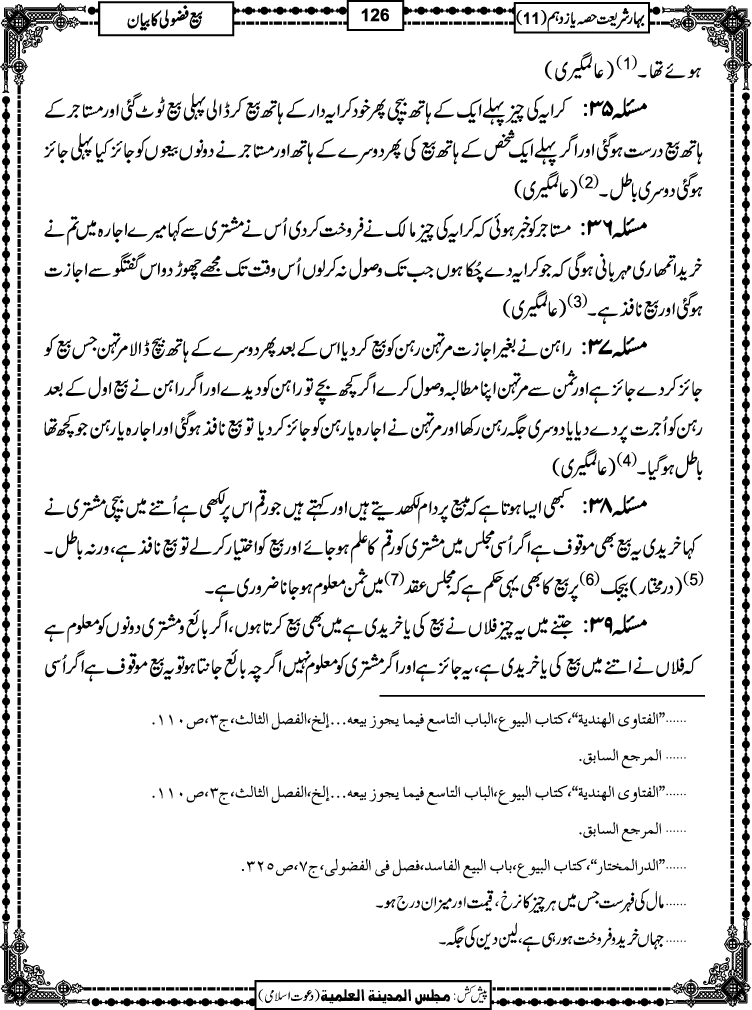 بہار شریعت حصہ یازدہم (11)
126
بیع فضولی کا بیان
ہوئے تھا۔(1) (عالمگیری)
مسئلہ ۳۵: کرایہ کی چیز پہلے ایک کے ہاتھ بیچی پھر خود کرایہ دار کے ہاتھ بیع کر ڈالی پہلی بیع ٹوٹ گئی اور مستاجر کے
ہاتھ بیع درست ہوگئی اور اگر پہلے ایک شخص کے ہاتھ بیع کی پھر دوسرے کے ہاتھ اور مستاجر نے دونوں بیعوں کو جائز کیا پہلی جائز
ہوگئی دوسری باطل۔(2) (عالمگیری)
مسئلہ ۳۶: مستاجر کو خبر ہوئی کہ کرایہ کی چیز مالک نے فروخت کردی اُس نے مشتری سے کہا میرے اجارہ میں تم نے
خریدا تمھاری مہربانی ہوگی کہ جو کرایہ دے چُکا ہوں جب تک وصول نہ کرلوں اُس وقت تک مجھے چھوڑ دو اس گفتگو سے اجازت
ہوگئی اور بیع نافذ ہے۔(3) (عالمگیری)
مسئلہ ۳۷: راہن نے بغیر اجازت مرتہن رہن کو بیع کردیا اس کے بعد پھر دوسرے کے ہاتھ بیچ ڈالا مرتہن جس بیع کو
جائز کردے جائز ہے اور ثمن سے مرتہن اپنا مطالبہ وصول کرے اگر کچھ بچے تو راہن کو دیدے اور اگر راہن نے بیع اول کے بعد
رہن کو اُجرت پر دے دیا یا دوسری جگہ رہن رکھا اور مرتہن نے اجارہ یا رہن کو جائز کردیا تو بیع نافذ ہوگئی اور اجارہ یا رہن جو کچھ تھا
باطل ہوگیا۔(4) (عالمگیری)
مسئلہ ۳۸: کبھی ایسا ہوتا ہے کہ مبیع پر دام لکھدیتے ہیں اور کہتے ہیں جو رقم اس پر لکھی ہے اُتنے میں بیچی مشتری نے
کہا خریدی یہ بیع بھی موقوف ہے اگر اُسی مجلس میں مشتری کو رقم کا علم ہو جائے اور بیع کو اختیار کرلے تو بیع نافذ ہے، ورنہ باطل۔
(5) (درمختار) بیجک (6) پر بیع کا بھی یہی حکم ہے کہ مجلس عقد (7) میں ثمن معلوم ہو جانا ضروری ہے۔
مسئلہ ۳۹: جتنے میں یہ چیز فلاں نے بیع کی یا خریدی ہے میں بھی بیع کرتا ہوں، اگر بائع و مشتری دونوں کو معلوم ہے
کہ فلاں نے اتنے میں بیع کی یا خریدی ہے، یہ جائز ہے اور اگر مشتری کو معلوم نہیں اگرچہ بائع جانتا ہو تو یہ بیع موقوف ہے اگر اُسی
......"الفتاوی الهندیة"، کتاب البیوع، الباب التاسع فیما یجوز بیعه...إلخ، الفصل الثالث، ج۳، ص۱۱۰.
...... المرجع السابق.
......"الفتاوی الهندیة"، کتاب البیوع، الباب التاسع فیما یجوز بیعه...إلخ، الفصل الثالث، ج۳، ص۱۱۰.
...... المرجع السابق.
......"الدرالمختار"، کتاب البیوع، باب البیع الفاسد، فصل فی الفضولی، ج۷، ص۳۲۵.
...... مال کی فہرست جس میں ہر چیز کا نرخ، قیمت اور میزان درج ہو۔
...... جہاں خرید و فروخت ہو رہی ہے، لین دین کی جگہ۔
پیش کش: مجلس المدینة العلمیة (دعوت اسلامی)